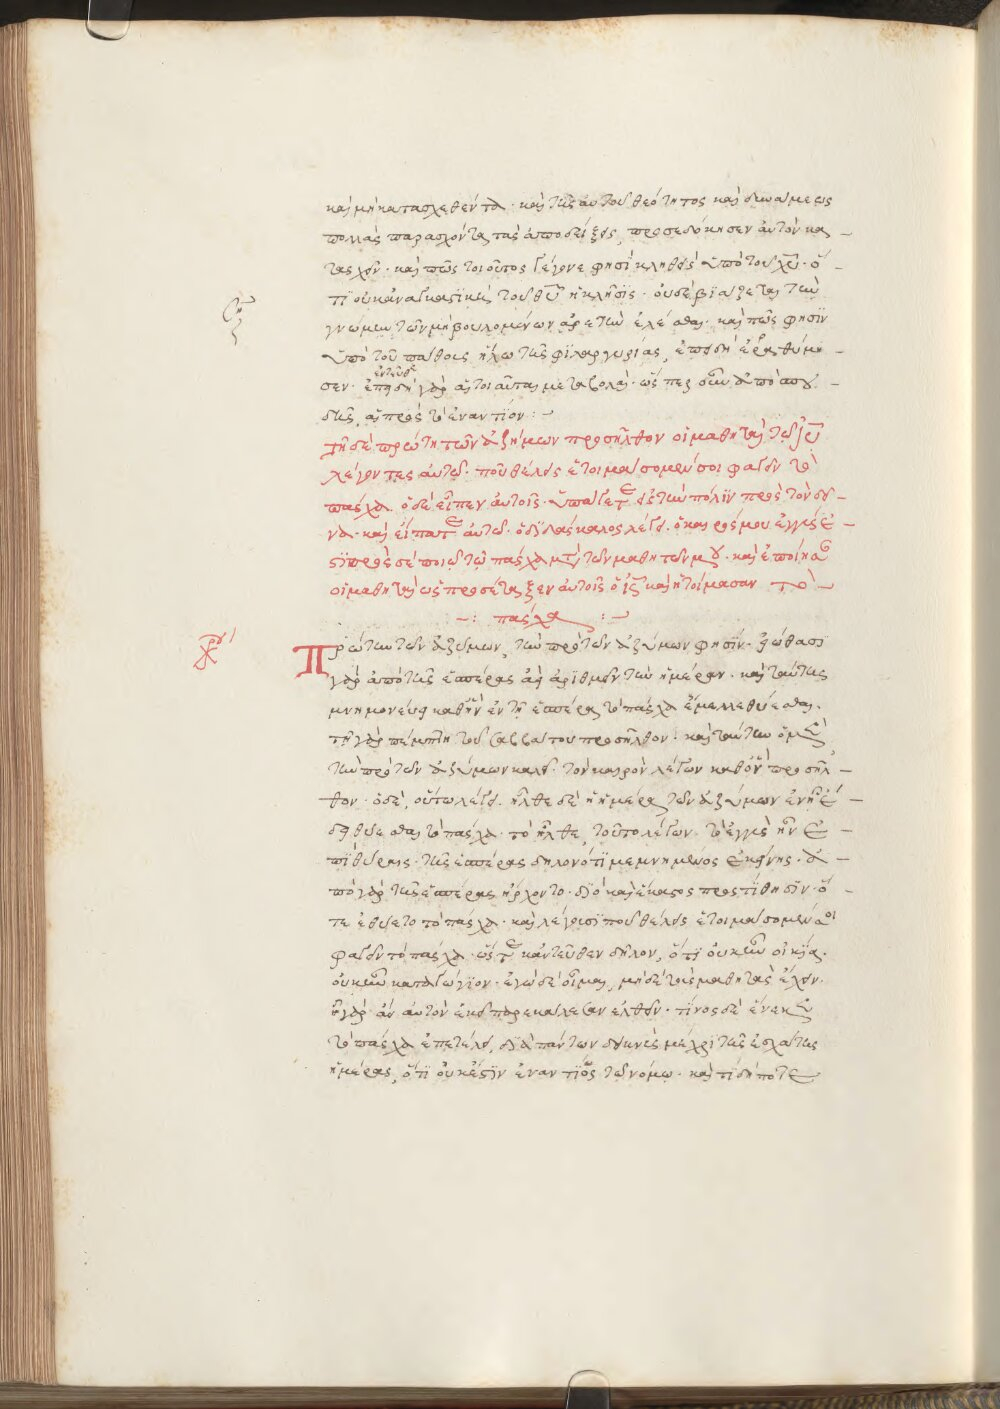 καὶ μὴ κατασχεθέντα· καὶ τῆς αὐτοῦ θεότητος καὶ δυνάμεως
πολλὰς παρασχόντα τὰς ἀποδείξεις, προσεδόκησεν αὐτὸν κα
τασχεῖν· καὶ πῶς τοιοῦτος γέγονε φησὶ κληθεὶς ὑπὸ τοῦ χυ· ὅ
τι οὐκ ἀναγκαστικὴ τοῦ θυ ἡ κλῆσις· οὐδὲ βιάζεται τὴν
γνώμην τῶν μὴ βουλομένων ἀρετὴν ἑλέσθαι· καὶ πῶς φησὶν
ὑπὸ τοῦ πάθους ἥλω τῆς φιλαργυρίας, ἐπειδὴ ἐραθύμη
σεν· ἐντεῦθεν γὰρ αἱ τοιαῦται μεταβολαὶ· ὥσπερ οὖν ἀπὸ σπου
δῆς, αἱ πρὸς τὸ ἐναντίον :
τῇ δὲ πρώτῃ τῶν ἀζύμων προσῆλθον οἱ μαθηταὶ τῷ ἰυ
λέγοντες αὐτῷ· ποῦ θέλεις ἑτοιμάσομέν σοι φαγεῖν τὸ
πάσχα ὁ δὲ εἶπεν αὐτοῖς· ὑπάγετε εἰς τὴν πόλιν πρὸς τὸν δεῖ
να· καὶ εἴπατε αὐτῷ· ὁ διδάσκαλος λέγει· ὁ καιρός μου ἐγγύς ἐ
στι πρός σὲ ποιῶ τὸ πάσχα μετὰ τῶν μαθητῶν μου· καὶ ἐποίησαν
οἱ μαθηταὶ ὡς προσέταξεν αὐτοῖς ὁ ις καὶ ἡτοίμασαν τὸ
πάσχα :
Πρώτην τῶν ἀζύμων, τὴν πρὸ τῶν ἀζύμων φησίν· εἰώθασι
γὰρ ἀπὸ τῆς ἑσπέρας ἀεὶ ἀριθμεῖν τὴν ἡμέραν· καὶ ταύτης
μνημονεύει καθ' ἣν ἐν τῇ ἑσπέρᾳ τὸ πάσχα ἔμελλε θύεσθαι·
τῇ γὰρ πέμπτῃ τοῦ σαββάτου προσῆλθον· καὶ ταύτην ὁ μὲν
τὴν πρὸ τῶν ἀζύμων καλεῖ· τὸν καιρὸν λέγων καθ' ὃν προσῆλ
θον· ὁ δὲ, οὕτω λέγει· ἦλθε δὲ ἡ ἡμέρα τῶν ἀζύμων ἐν ᾗ ἔ
δει θύεσθαι τὸ πάσχα· τὸ ἦλθε, τοῦτο λέγων· τὸ ἐγγὺς ἦν ἐ
πὶ θύραις· τῆς ἑσπέρας δηλονότι μεμνημένος ἐκείνης· ἀ
πὸ γὰρ τῆς ἑσπέρας ἤρχοντο· διὸ καὶ ἕκαστος προστίθησιν· ὅ
τε ἐθύετο τὸ πάσχα· καὶ λέγουσι ποῦ θέλεις ἑτοιμάσομέν σοι
φαγεῖν τὸ πάσχα· ὥστε κἀντεῦθεν δῆλον, ὅτι οὐκ ἦν οἰκία·
οὐκ ἦν καταγώγιον· ἐγὼ δὲ οἶμαι, μὴ δὲ τοὺς μαθητὰς ἔχειν·
ἦ γὰρ ἂν αὐτὸν ἐκεῖ παρεκάλεσαν ἐλθεῖν· τίνος δὲ ἕνεκεν
τὸ πάσχα ἐπετέλει, διὰ πάντων δεικνὺς μέχρι τῆς ἐσχάτης
ἡμέρας, ὅτι οὐκ ἔστιν ἐναντίος τῷ νόμῳ· καὶ τί δή ποτε